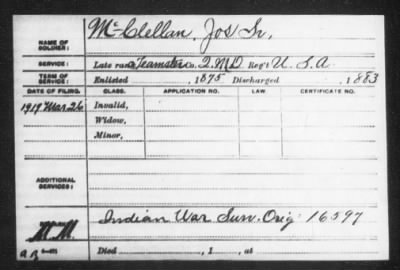 NAME OF SOLDIER: McClellan, Jos Sr.
SERVICE: Late rank Teamster Co. Q.M.D. Reg't U.S.A.
TERM OF SERVICE: Enlisted , 1875 Discharged , 1883
DATE OF FILING. CLASS. APPLICATION NO. LAW. CERTIFICATE NO.
1919 Mar 26 Invalid,
Widow,
Minor,
ADDITIONAL SERVICES:
Indian War Surv. Orig. 16597
Died , 1 , at